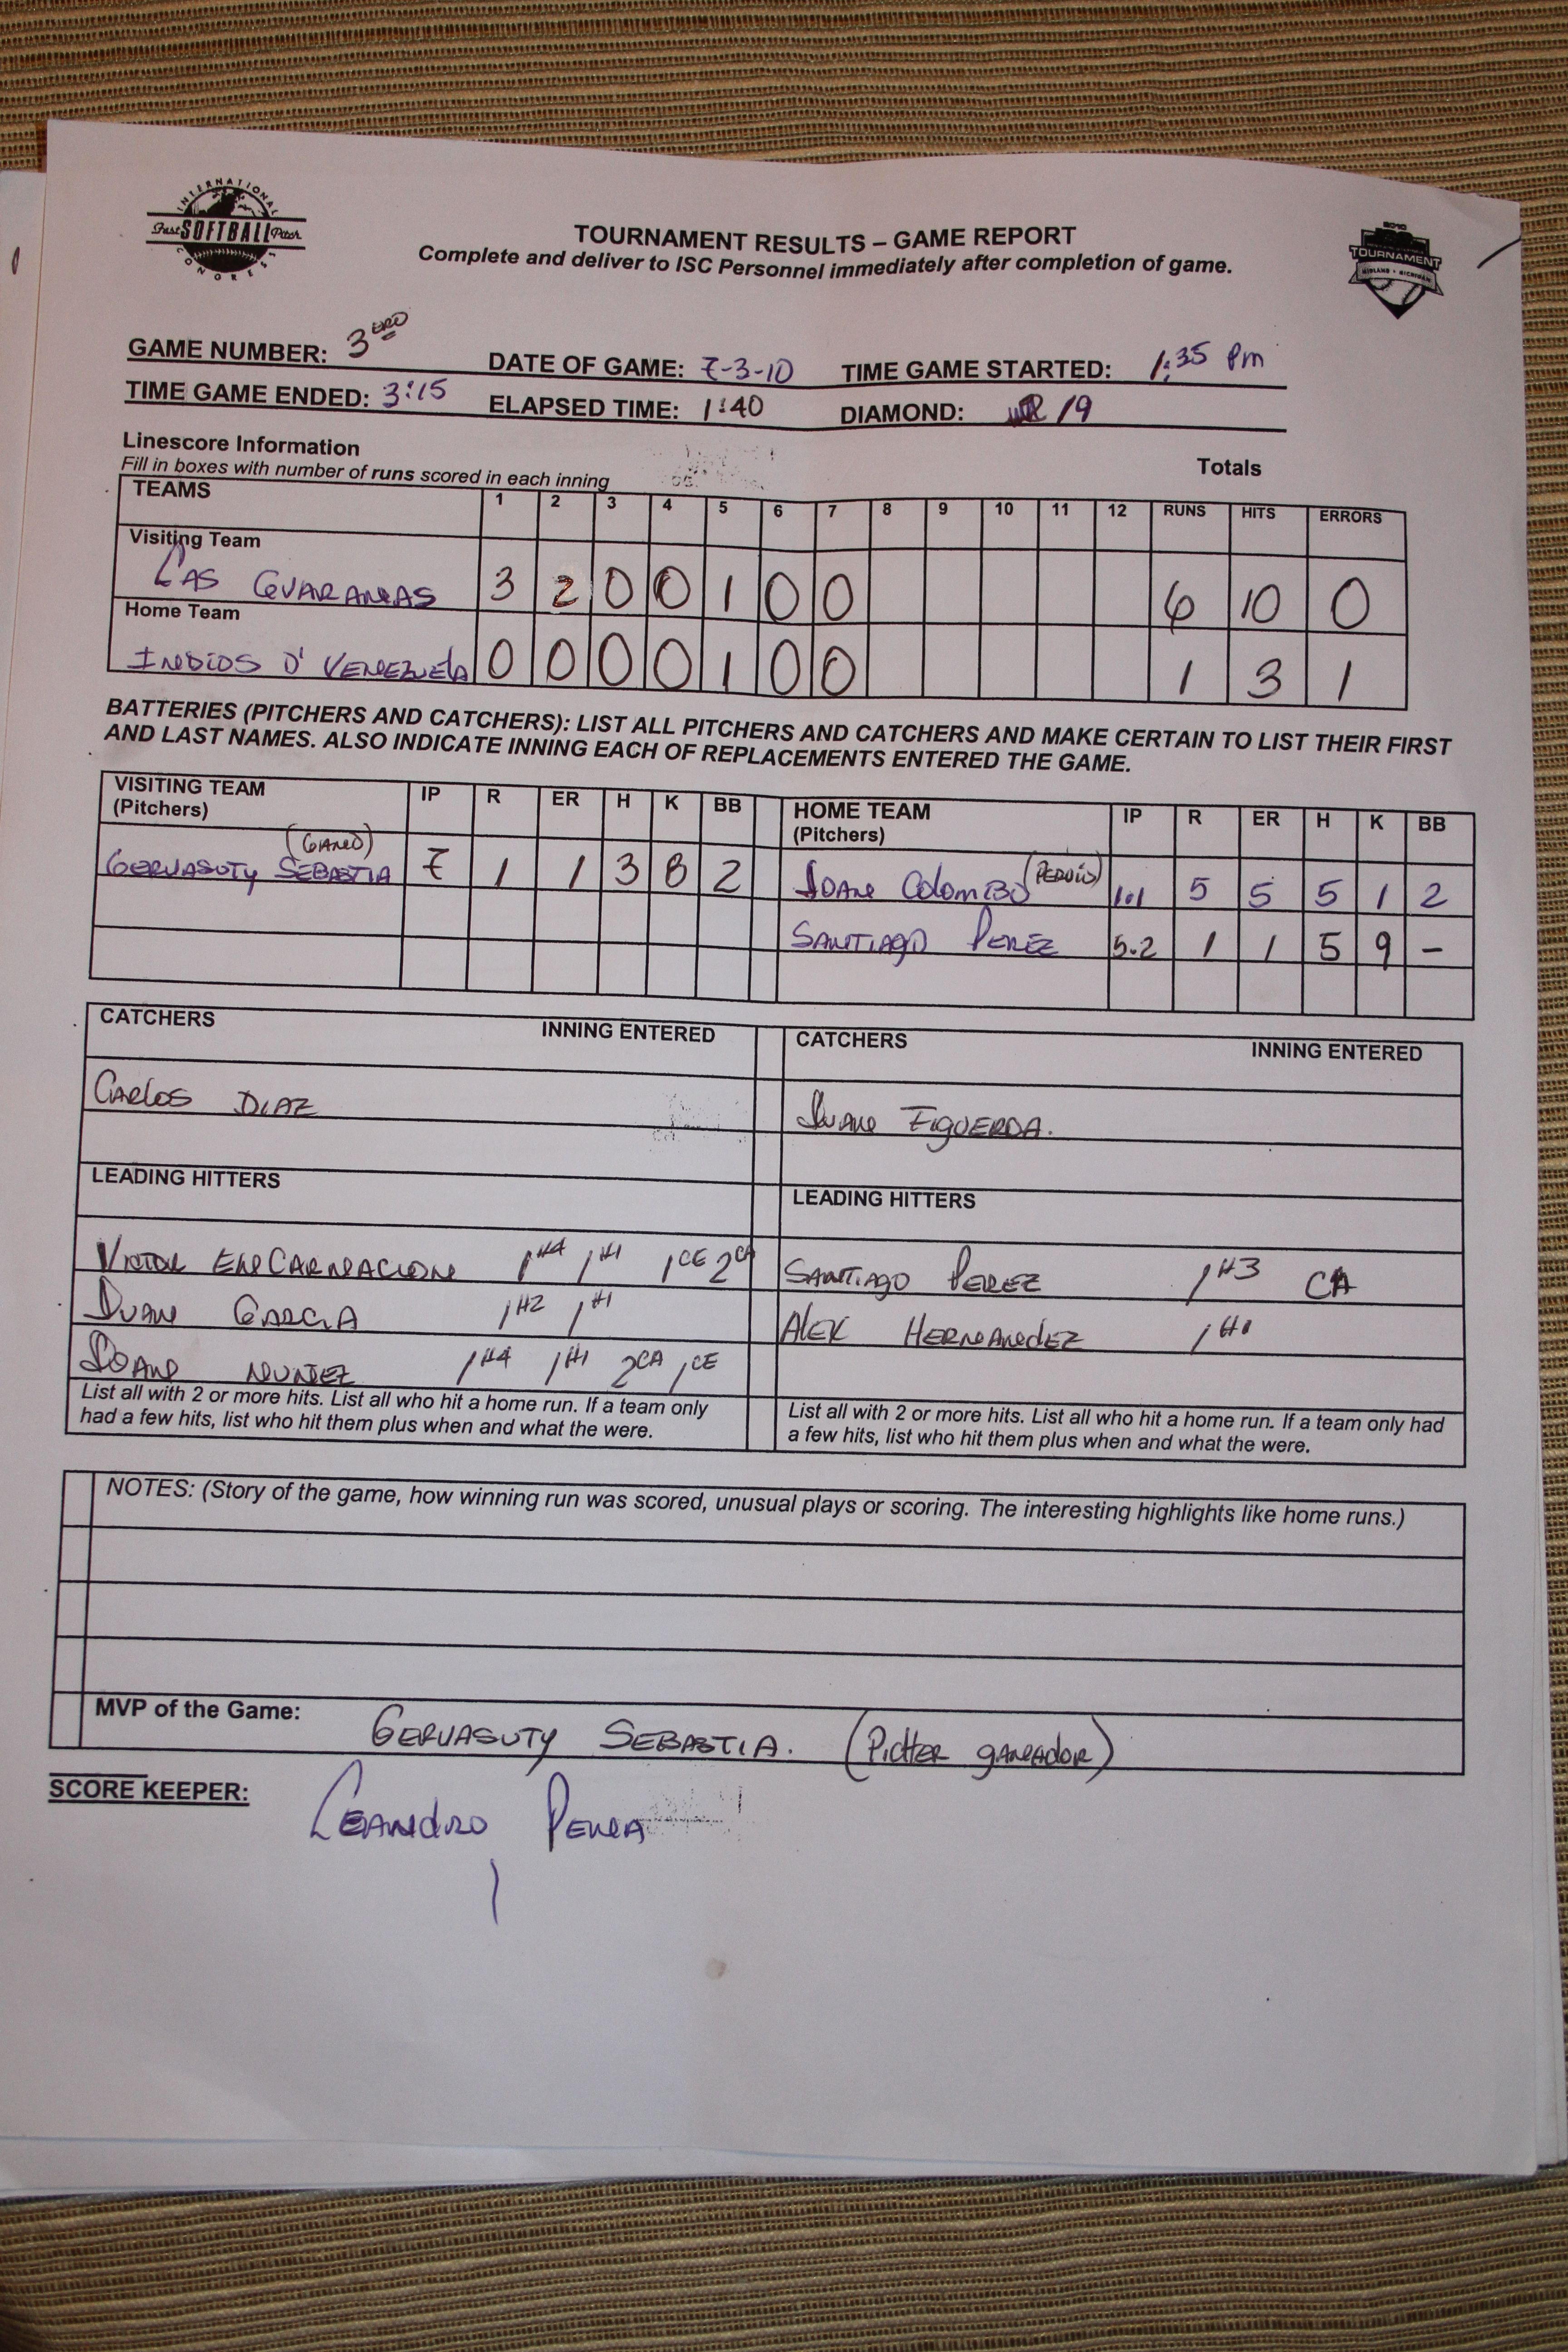 INTERNATIONAL
Fast SOFTBALL Pitch
CONGRESS
TOURNAMENT RESULTS – GAME REPORT
Complete and deliver to ISC Personnel immediately after completion of game.
2010
TOURNAMENT
MIDLAND • MICHIGAN
GAME NUMBER: 3ERO DATE OF GAME: 7-3-10 TIME GAME STARTED: 1:35 Pm
TIME GAME ENDED: 3:15 ELAPSED TIME: 1:40 DIAMOND: 19
Linescore Information
Fill in boxes with number of runs scored in each inning Totals
TEAMS 1 2 3 4 5 6 7 8 9 10 11 12 RUNS HITS ERRORS
Visiting Team
LAS GUARANAS 3 2 0 0 1 0 0 6 10 0
Home Team
INDIOS D' VENEZUELA 0 0 0 0 1 0 0 1 3 1
BATTERIES (PITCHERS AND CATCHERS): LIST ALL PITCHERS AND CATCHERS AND MAKE CERTAIN TO LIST THEIR FIRST
AND LAST NAMES. ALSO INDICATE INNING EACH OF REPLACEMENTS ENTERED THE GAME.
VISITING TEAM (Pitchers) IP R ER H K BB HOME TEAM (Pitchers) IP R ER H K BB
GERVASUTY SEBASTIA (GANO) 7 1 1 3 8 2 JOAN COLOMBO (PERDIO) 1.1 5 5 5 1 2
SANTIAGO PEREZ 5.2 1 1 5 9 -
CATCHERS INNING ENTERED CATCHERS INNING ENTERED
CARLOS DIAZ JUAN FIGUEROA.
LEADING HITTERS LEADING HITTERS
VICTOR ENCARNACION 1H4 1H1 1CE 2CA SANTIAGO PEREZ 1H3 CA
JUAN GARCIA 1H2 1H1 ALEX HERNANDEZ 1H1
JOAN NUNEZ 1H4 1H1 2CA 1CE
List all with 2 or more hits. List all who hit a home run. If a team only
had a few hits, list who hit them plus when and what the were.
List all with 2 or more hits. List all who hit a home run. If a team only had
a few hits, list who hit them plus when and what the were.
NOTES: (Story of the game, how winning run was scored, unusual plays or scoring. The interesting highlights like home runs.)
MVP of the Game: GERVASUTY SEBASTIA. (PICHER GANADOR)
SCORE KEEPER: LEANDRO PENA